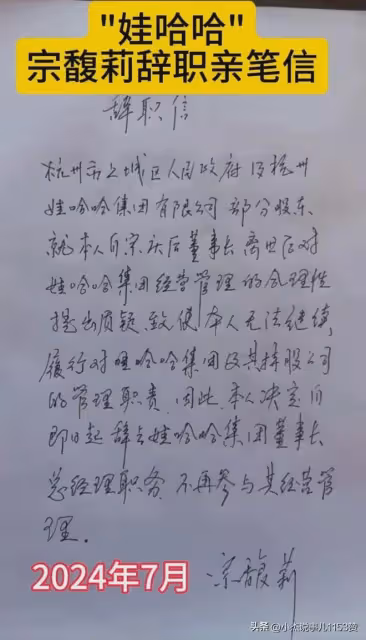 "娃哈哈"
宗馥莉辞职亲笔信
辞职信
杭州市上城区人民政府及杭州
娃哈哈集团有限公司部分股东
就本人自宗庆后董事长离世后对
娃哈哈集团经营管理的合理性
提出质疑,致使本人无法继续
履行对娃哈哈集团及其持股公司
的管理职责。因此,本人决定自
即日起辞去娃哈哈集团董事长
总经理职务,不再参与其经营管
理。
2024年7月
宗馥莉
头条 @小杰说事儿1153赞